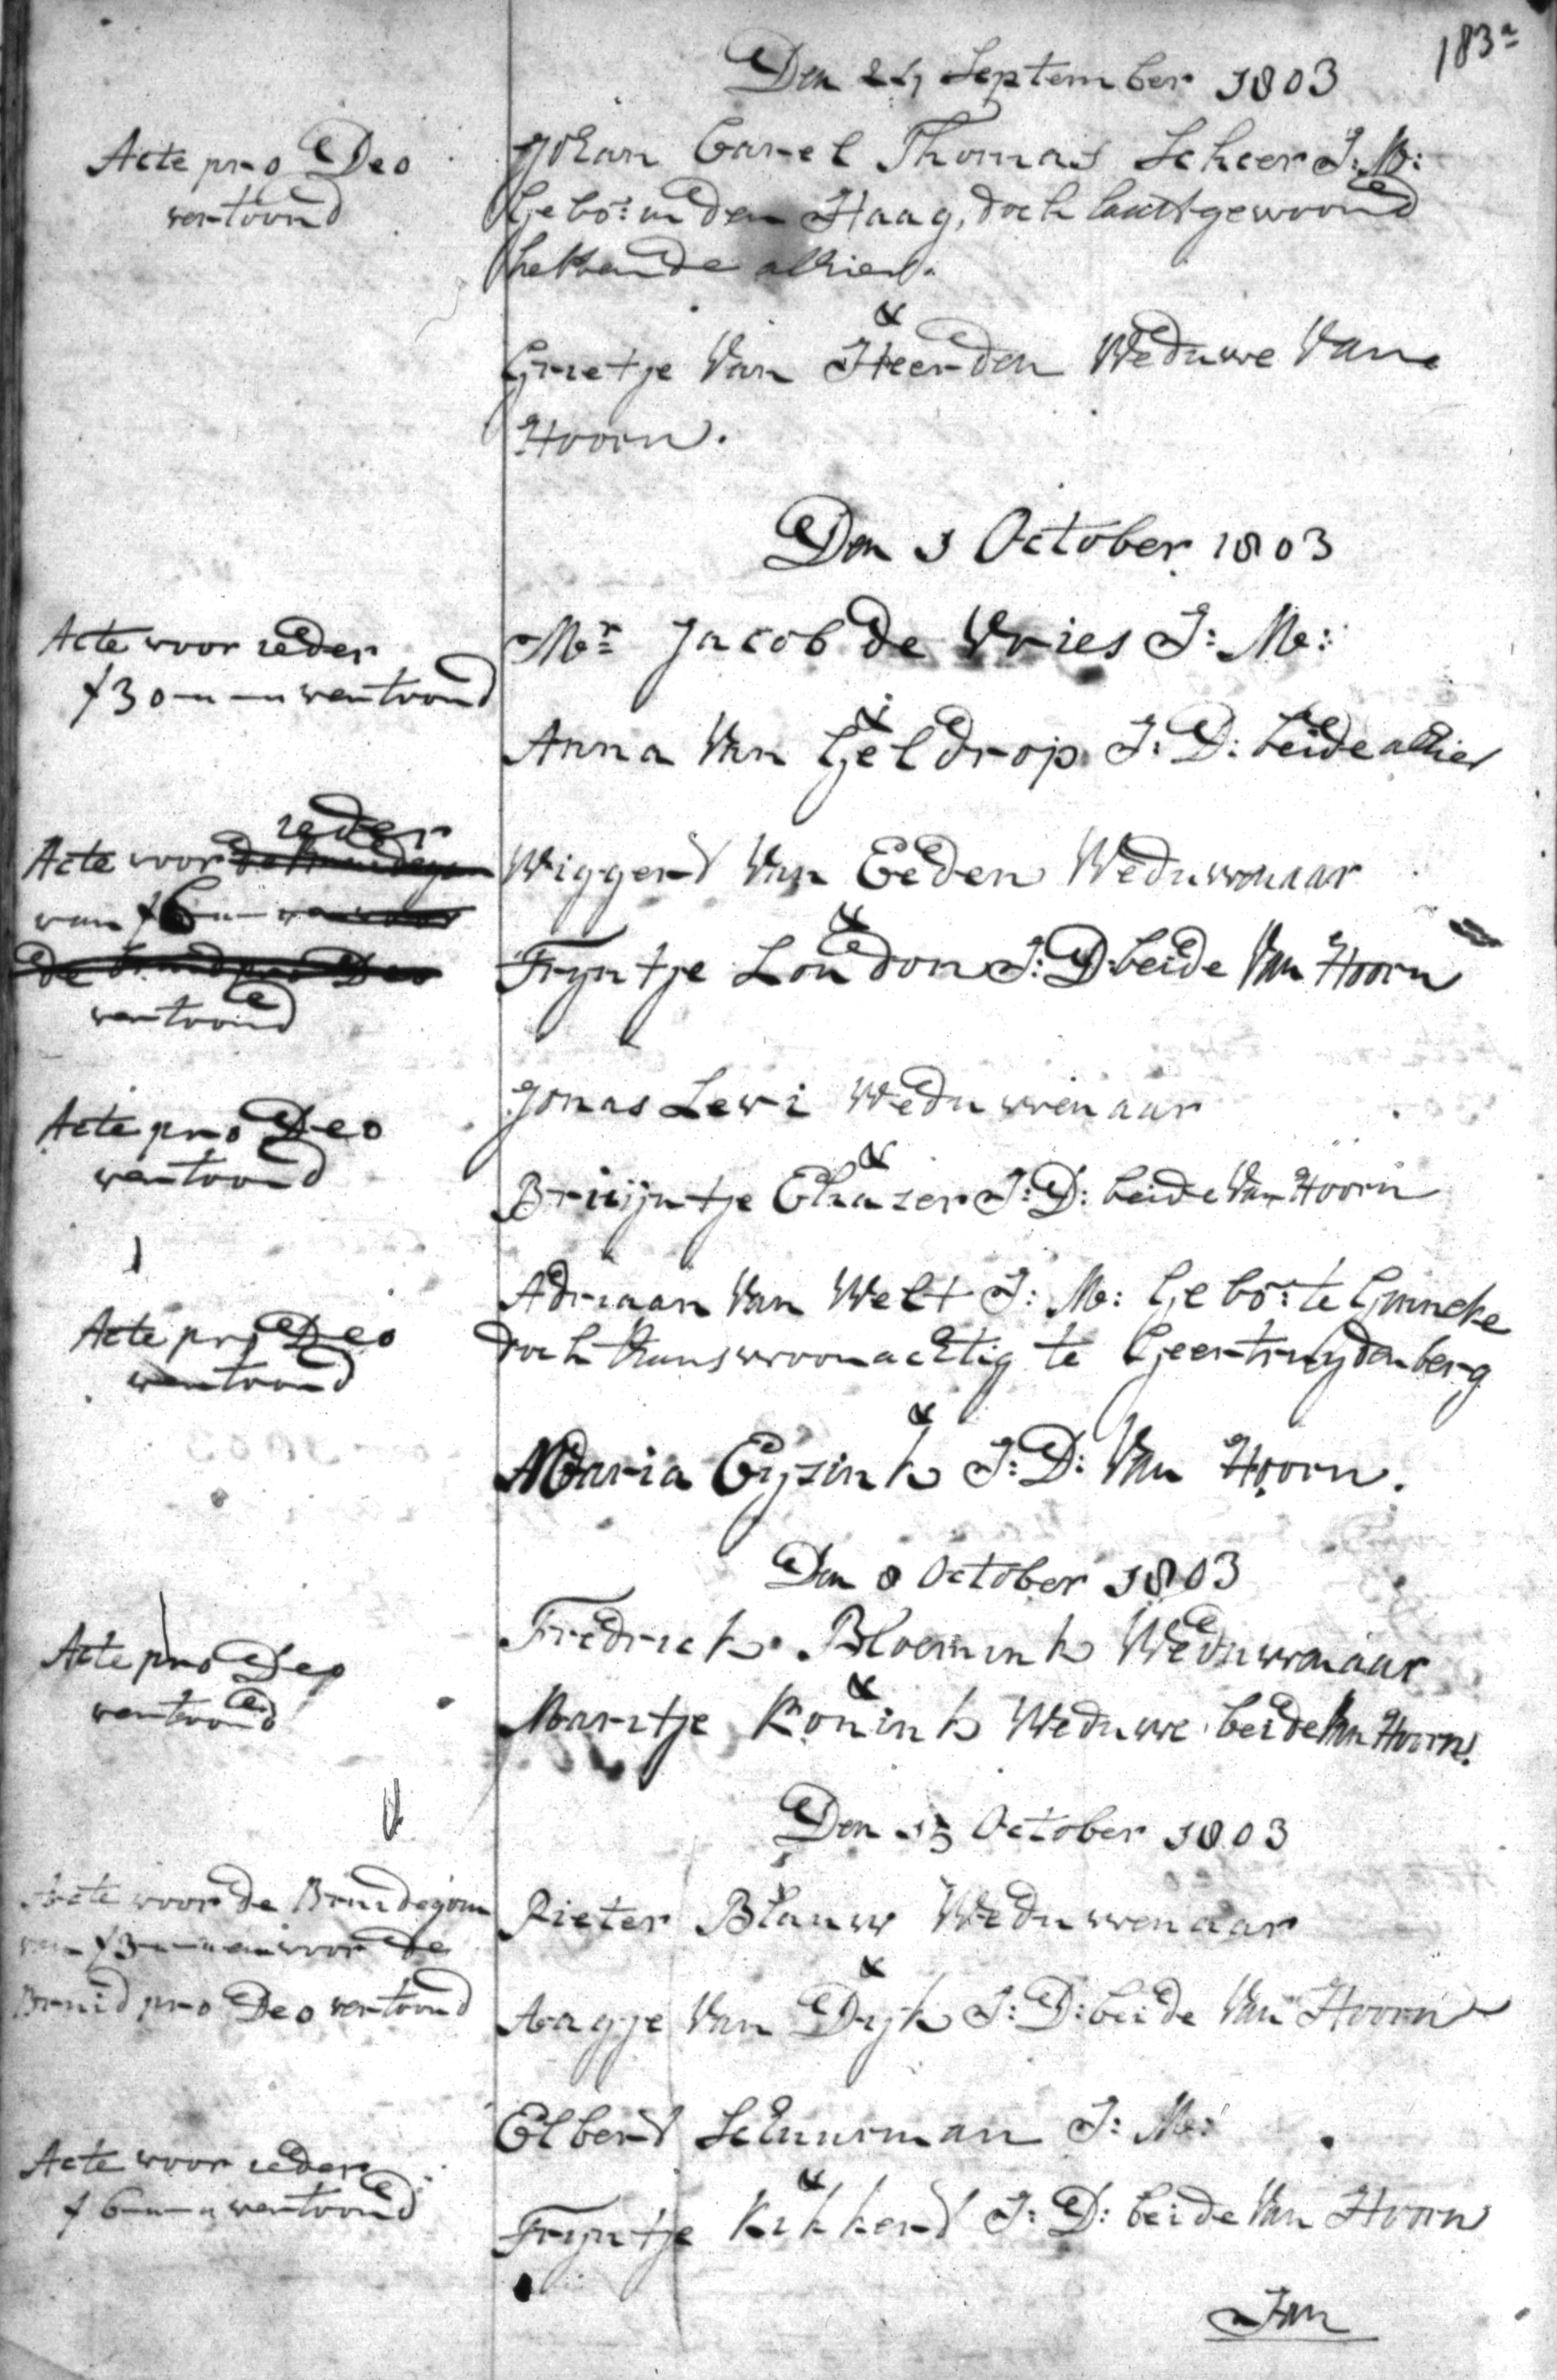 183a
Den 24 September 1803
Acte pro Deo
vertoond
Johan Carel Thomas Scheer J: M:
Gebo: in den Haag, doch laatst gewoond
hebbende alhier.
&
Grietje Van Heerden Weduwe Van
Hoorn.
Den 1 October 1803
Acte voor ieder
f 30-"-" vertoond
Mr Jacob de Vries J: M:
&
Anna Van Geldrop J: D: beide alhier
ieder
Acte voor de Bruidegom
van f 6-"-
de bruid pro Deo
vertoond
Wiggerd Van Eeden Weduwenaar
&
Tryntje London J: D: beide Van Hoorn
Acte pro Deo
vertoond
Jonas Levi Weduwenaar
&
Bruijntje Eliazer J: D: beide Van Hoorn
Acte pro Deo
vertoond
Adriaan Van Welt J: M: Gebo: te Ginneke
doch thans woonachtig te Geertruydenberg
&
Maria Eysink J: D: Van Hoorn.
Den 8 October 1803
Acte pro Deo
vertoond
Fredrick Bloemink Weduwenaar
&
Maretje Konink Weduwe beide Van Hoorn.
Den 15 October 1803
Acte voor de Bruidegom
van f 3-"-" en voor de
Bruid pro Deo vertoond
Pieter Blauw Weduwenaar
&
Aagje Van Dyk J: D: beide Van Hoorn
Acte voor ieder
f 6-"-" vertoond
Elberd Schuurman J: M:
&
Tryntje Kikkerd J: D: beide Van Hoorn
Jan